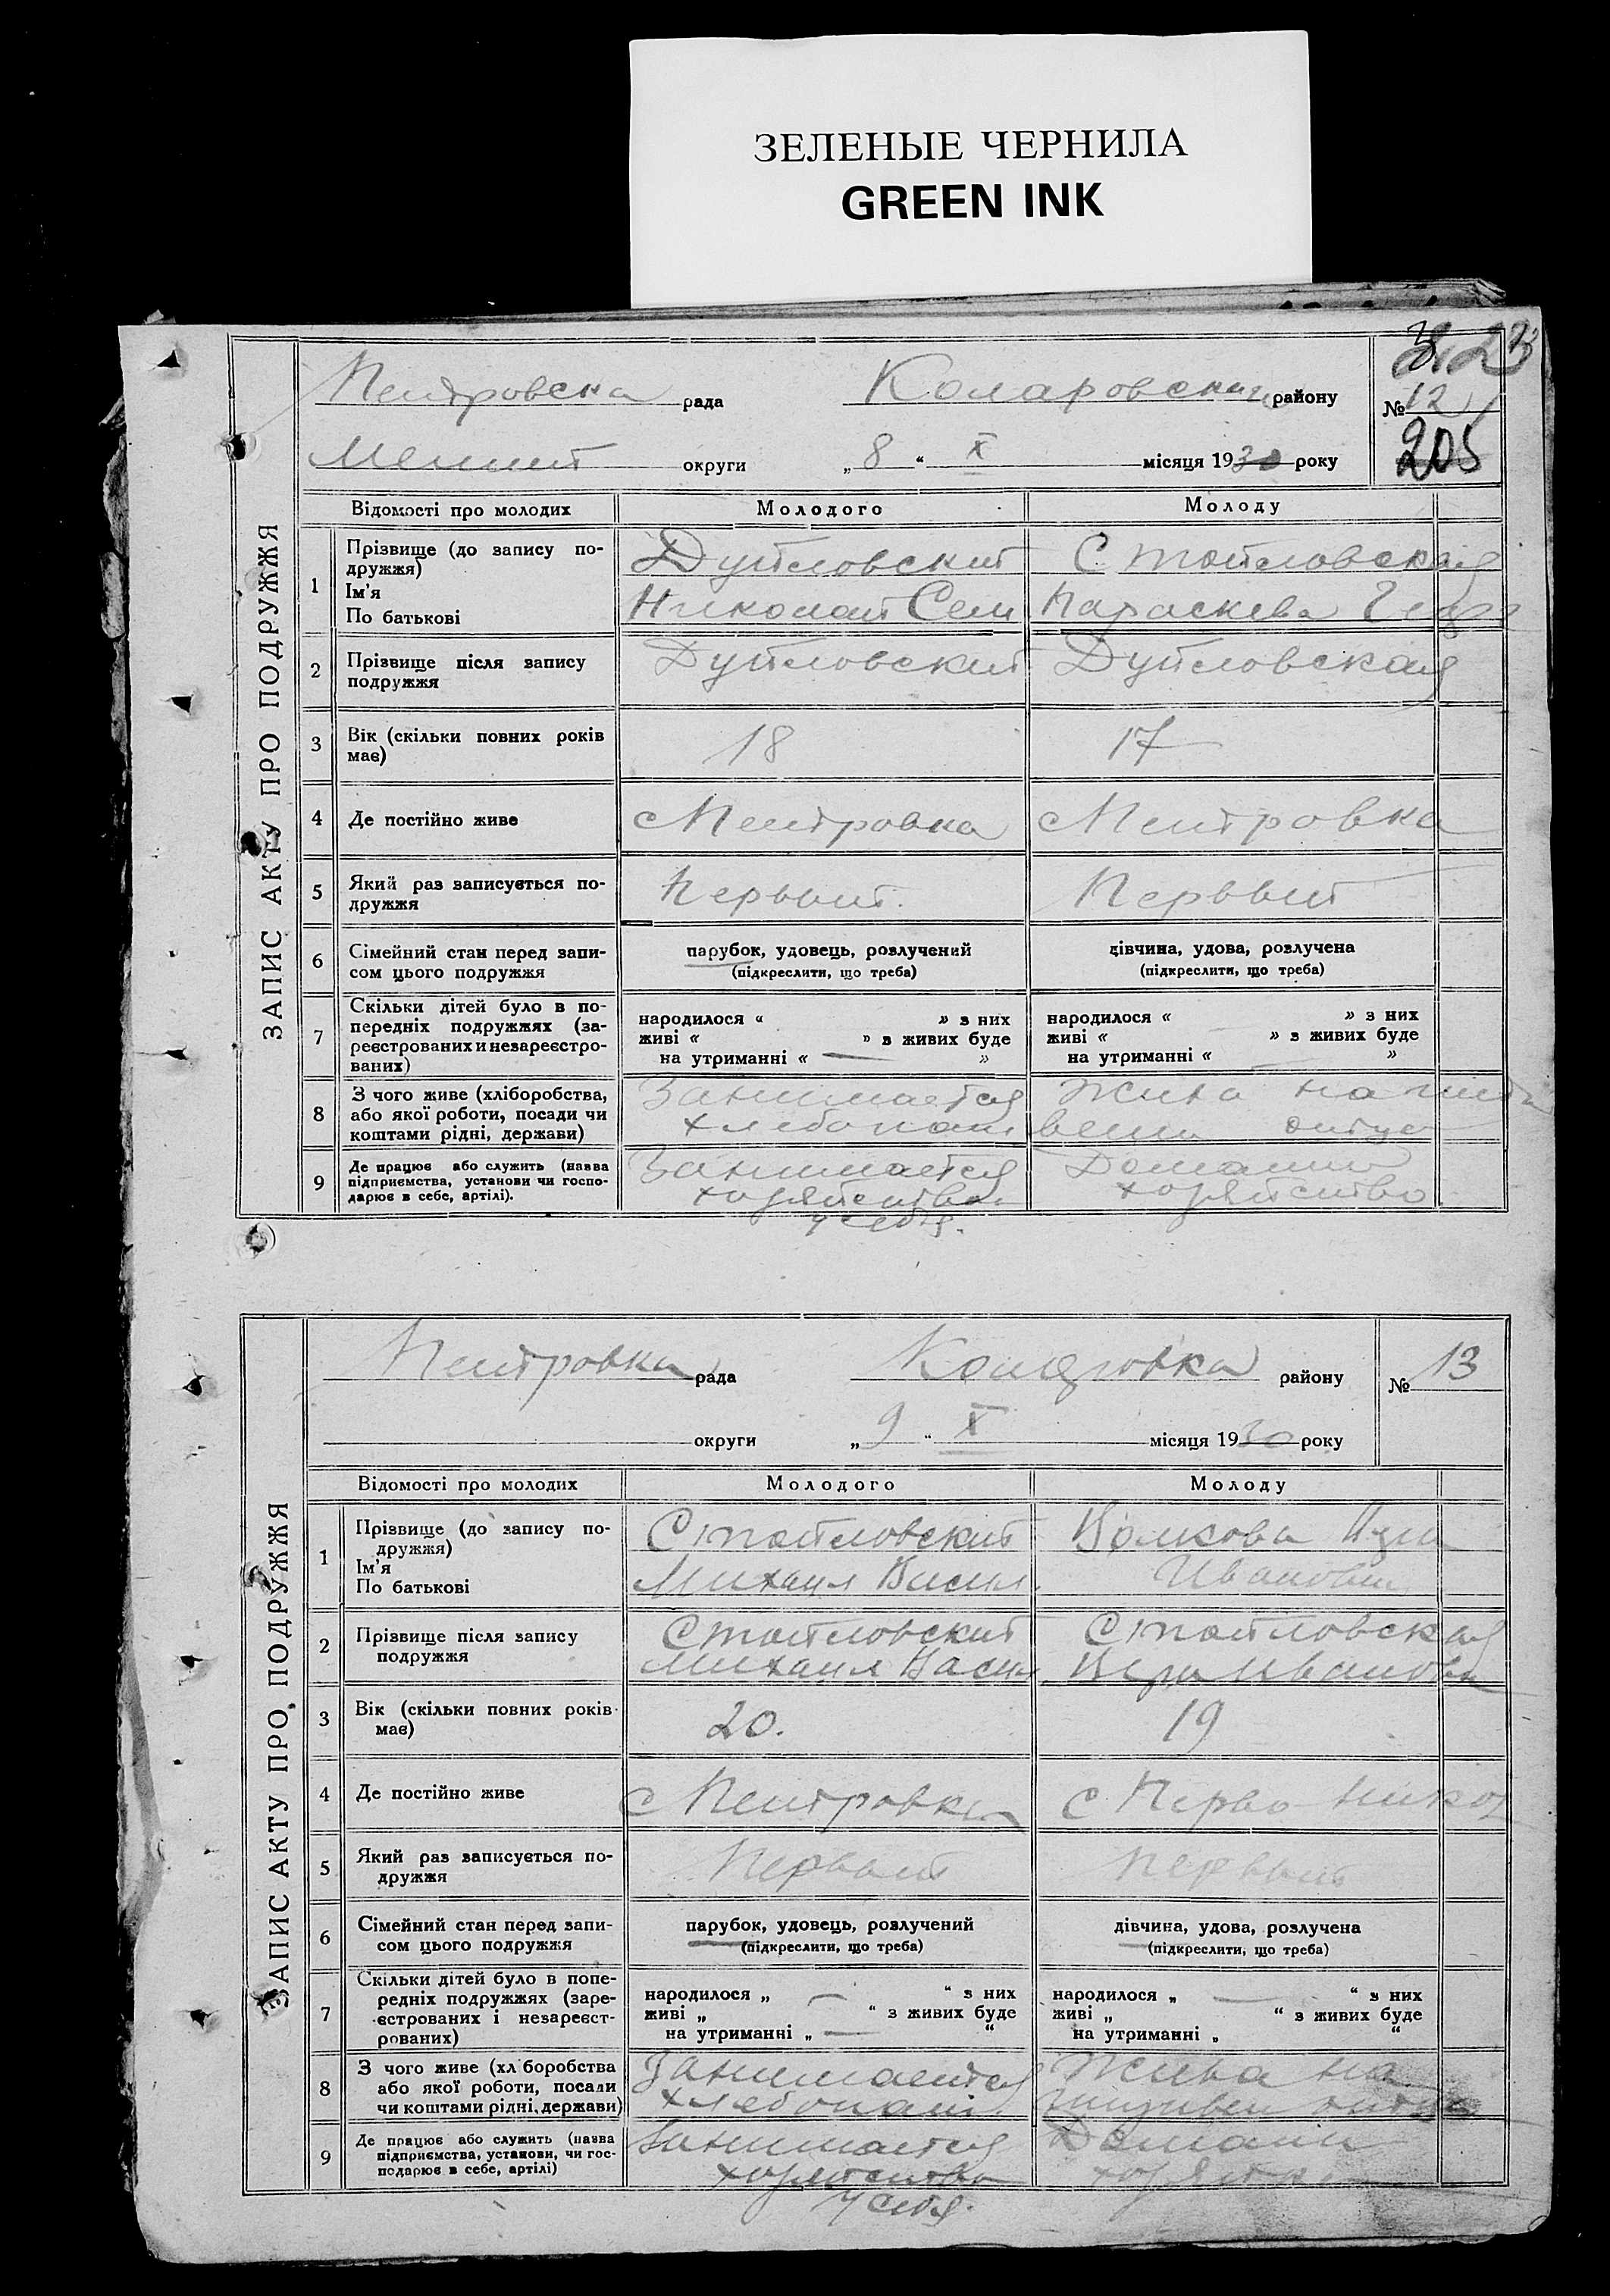 ЗЕЛЕНЫЕ ЧЕРНИЛА
GREEN INK
23
ЗАПИС АКТУ ПРО ПОДРУЖЖЯ
Петровска рада Коларовский району № 12
округи „ 8 “ X місяця 1930 року 205
Відомості про молодих Молодого Молоду
1 Прізвище (до запису по-
дружжя)
Ім'я
По батькові
Дуйловский Стойловская
Николай Сем Параскева
2 Прізвище після запису
подружжя
Дуйловский Дуйловская
3 Вік (скільки повних років
має)
18 17
4 Де постійно живе с Петровка с Петровка
5 Який раз записується по-
дружжя
Первый Первый
6 Сімейний стан перед запи-
сом цього подружжя
парубок, удовець, розлучений дівчина, удова, розлучена
(підкреслити, що треба) (підкреслити, що треба)
7 Скільки дітей було в по-
передніх подружжях (за-
реєстрованих и незареєстро-
ваних)
народилося « » з них народилося « » з них
живі « » з живих буде живі « » з живих буде
на утриманні « — » на утриманні « »
8 З чого живе (хліборобства,
або якої роботи, посади чи
коштами рідні, держави)
Занимается Жила на
хлебопаш отца
9 Де працює або служить (назва
підприємства, установи чи госпо-
дарює в себе, артілі).
Занимается Домашно
хозяйство хозяйство
у себя.
ЗАПИС АКТУ ПРО ПОДРУЖЖЯ
Петровка рада району № 13
округи „ 9 “ X місяця 1930 року
Відомості про молодих Молодого Молоду
1 Прізвище (до запису по-
дружжя)
Ім'я
По батькові
Стойловский Волкова
Михаил Васил. Ивановн
2 Прізвище після запису
подружжя
Стойловский Стойловская
Михаил Васил. Вера Ивановн
3 Вік (скільки повних років
має)
20. 19
4 Де постійно живе с Петровка с Перво Никол
5 Який раз записується по-
дружжя
Первый Первый
6 Сімейний стан перед запи-
сом цього подружжя
парубок, удовець, розлучений дівчина, удова, розлучена
(підкреслити, що треба) (підкреслити, що треба)
7 Скільки дітей було в попе-
редніх подружжях (заре-
єстрованих і незареєст-
рованих)
народилося „ — “ з них народилося „ — “ з них
живі „ “ з живих буде живі „ “ з живих буде
на утриманні „ — “ на утриманні „ “
8 З чого живе (хл боробства
або якої роботи, посади
чи коштами рідні, держави)
Занимается Жила на
хлебопаш. отца
9 Де працює або служить (назва
підприємства, установи, чи гос-
подарює в себе, артілі)
Занимается Домашн
хозяйство
у себя.